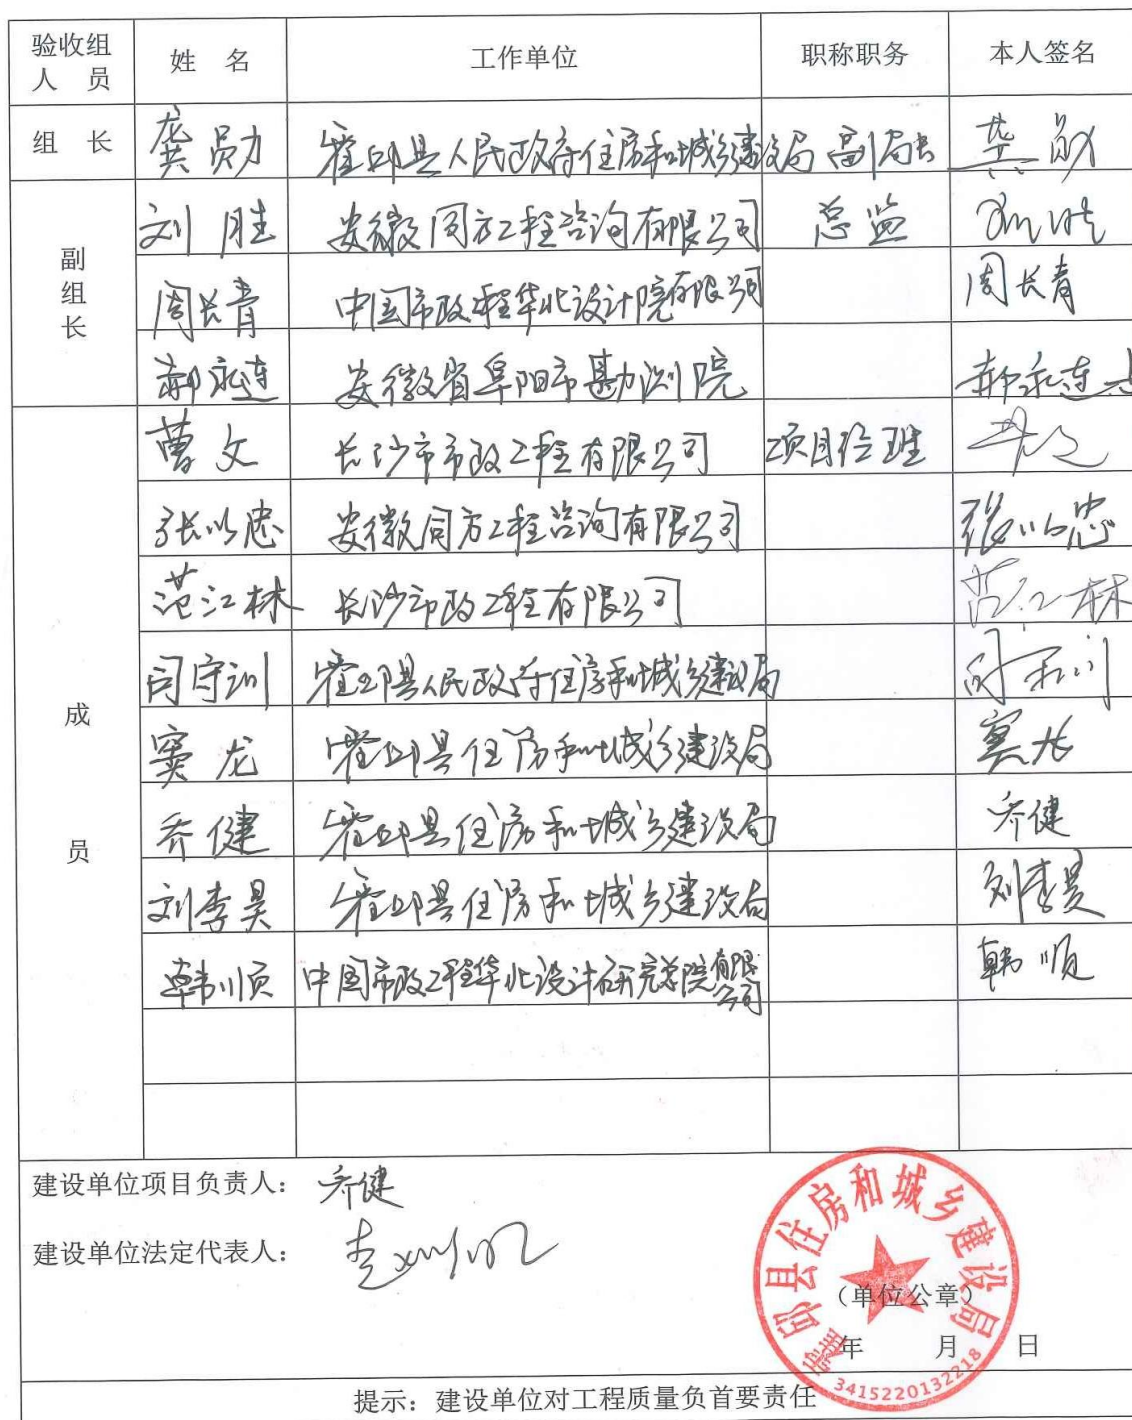 验收组人员 姓名 工作单位 职称职务 本人签名
组长 龚勋 霍邱县人民政府住房和城乡建设局 副局长 龚勋
副组长
刘胜 安徽同方工程咨询有限公司 总监
周长青 中国市政工程华北设计院有限公司 周长青
郝永连 安徽省阜阳市勘测院 郝永连
成员
曹文 长沙市市政工程有限公司 项目经理 曹文
张以忠 安徽同方工程咨询有限公司 张以忠
范江林 长沙市政工程有限公司 范江林
司守训 霍邱县人民政府住房和城乡建设局
窦龙 霍邱县住房和城乡建设局 窦龙
乔健 霍邱县住房和城乡建设局 乔健
刘李昊 霍邱县住房和城乡建设局 刘李昊
韩顺 中国市政工程华北设计研究总院有限公司 韩顺
建设单位项目负责人: 乔健
建设单位法定代表人:
霍邱县住房和城乡建设局
(单位公章)
年 月 日
3415220132218
提示:建设单位对工程质量负首要责任